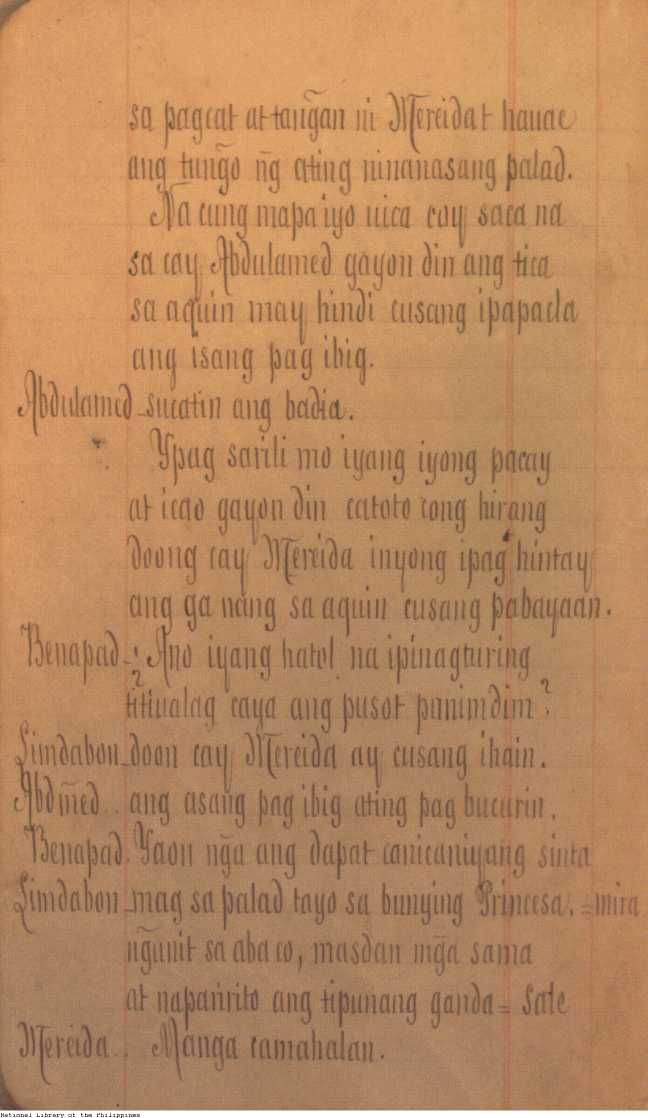 sa pagcat at tan͠gan ni Mereidat hauac
ang tun͠go n͠g ating ninanasang palad.
Na cung mapa iyo uica coy saca na
sa cay Abdulamed gayon din ang tica
sa aquin may hindi cusang ipapacla
ang isang pag ibig.
Abdulamed - sucatin ang badia.
Ypag sarili mo iyang iyong pacay
at icao gayon din catoto cong hirang
doong cay Mereida inyong ipag hintay
ang ga nang sa aquin cusang pabayaan.
Benapad - ¡ Ano iyang hatol na ipinagturing
¿ titiualag caya ang pusot panimdim ?
Limdabon - doon cay Mereida ay cusang ihain.
Abdm̃ed .. ang asang pag ibig ating pag bucurin.
Benapad. Yaon n͠ga ang dapat canicaniyang sinta
Limdabon - mag sa palad tayo sa bunying Princesa. = mira
n͠gunit sa aba co, masdan m͠ga sama
at naparirito ang tipunang ganda = Sale
Mereida .. Manga camahalan.
National Library of the Philippines